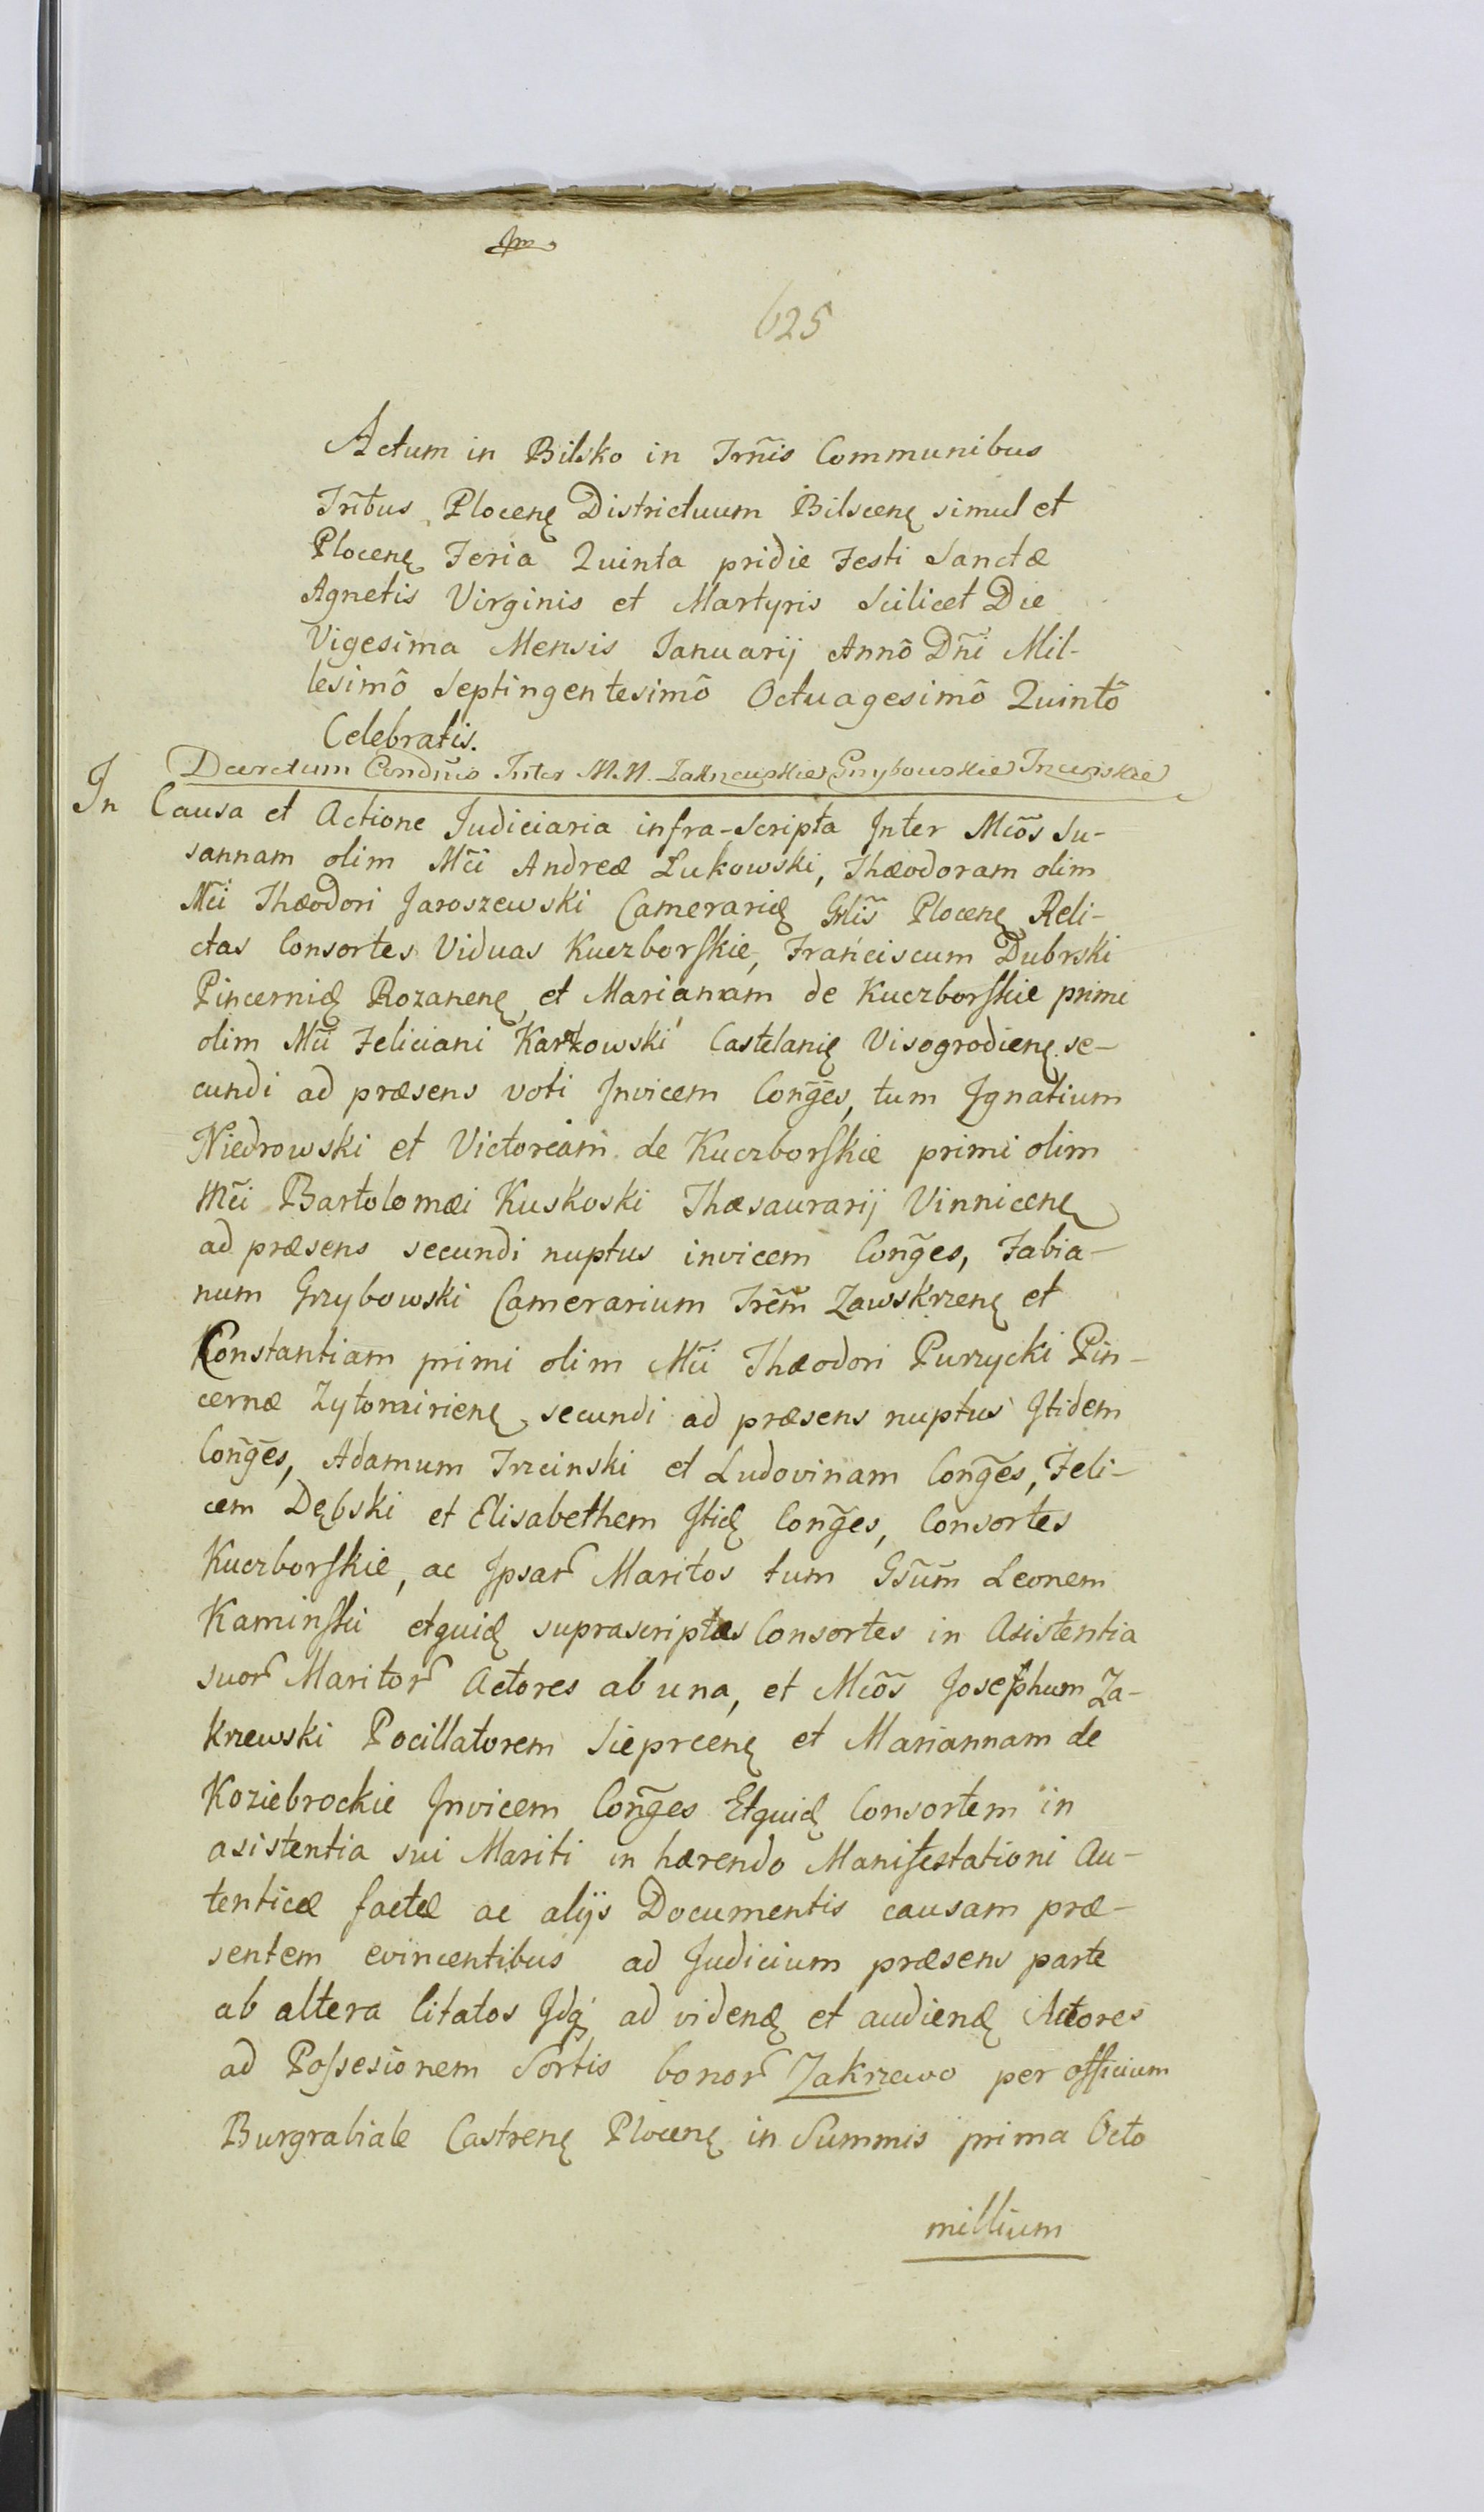 625
Actum in Bilsko in Trñis Communibus
Trĩbus Plocenę Districtuum Bilscenę simul et
Plocenę Feria Quinta pridie Festi Sanctæ
Agnetis Virginis et Martyris Scilicet Die
Vigesima Mensis Januarij Annô Dñi Mil-
lesimô Septingentesimô Octuagesimô Quintô
Celebratis.
Decretum Condñis Inter M.M. Zakrzewskie Grzybowskie
In Causa et Actione Judiciaria infra-Scripta Inter Mcõs Su-
sannam olim Mci Andreæ Łukowski, Thæodoram olim
Mci Thæodori Jaroszewski Camerarię Grlis Plocenę Reli-
ctas Consortes Viduas Kuczborskie, Franciscum Dubrski
Pincernię Rozanenę, et Mariannam de Kuczborskie primi
olim Mci Feliciani Karzkowski Castelanię Visogrodienę se-
cundi ad præsens voti Invicem Conges, tum Ignatium
Niedrowski et Victoriam de Kuczborskie primi olim
Mci Bartolomæi Kuskoski Thæsaurarij Vinnicenę
ad præsens secundi nuptus invicem Conges, Fabia-
num Grzybowski Camerarium Trẽm Zawskrzenę et
Constantiam primi olim Mci Thæodori Purzycki Pin-
cernæ Zytomirienę secundi ad præsens nuptus Itidem
Conges, Adamum Trzcinski et Ludovinam Conges, Feli-
cem Dębski et Elisabethem Itię Conges, Consortes
Kuczborskie, ac Ipsar Maritos tum Gsum Leonem
Kaminski etquię suprascriptas Consortes in Asistentia
suor Maritor Actores ab una, et Mcõs Josephum Za-
krzewski Pocillatorem Sieprcenę et Mariannam de
Koziebrockie Invicem Conges Etquię Consortem in
asistentia sui Mariti in hærendo Manifestationi Au-
tenticæ factæ ac alijs Documentis causam præ-
sentem evincentibus ad Judicium præsens parte
ab altera Citatos Idq ad videnę et audienę Actores
ad Possesionem Sortis bonor Zakrzewo per officium
Burgrabiale Castrenę Plocenę in Summis prima Octo
millium